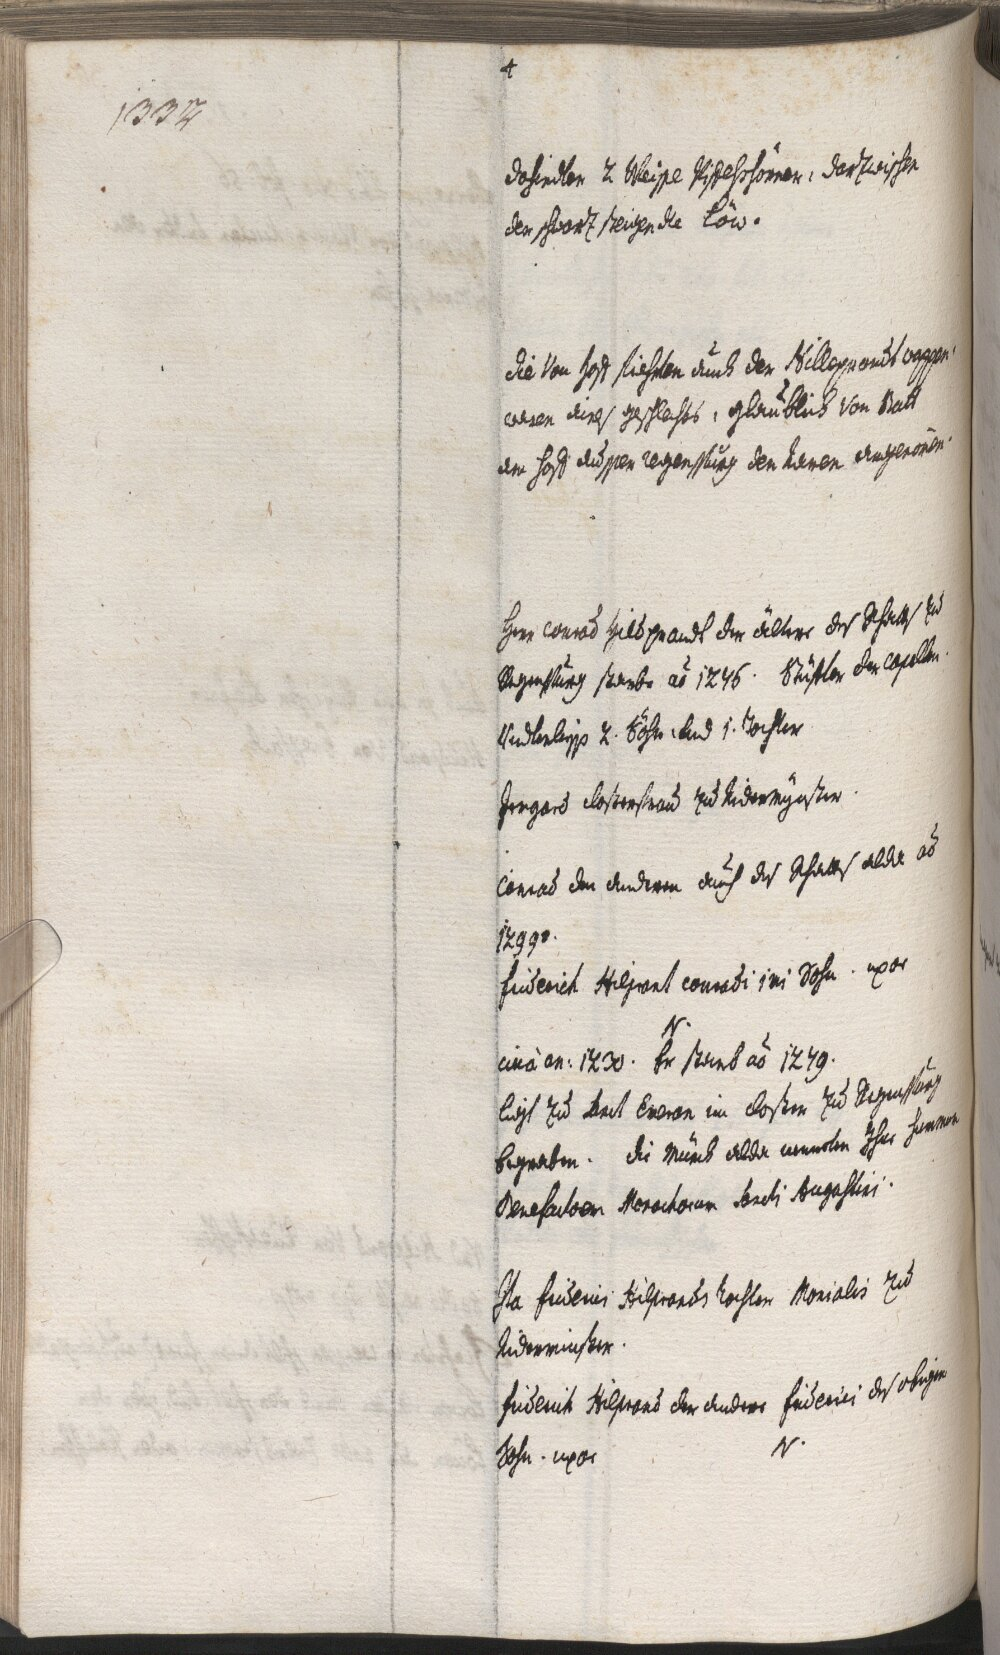 1332
4
dahindter 2 Weisse Püffelshörner, darzwischen
der schwarz steigendte Löw.
die Von Hoff fiehrten auch der Hilleprandt wappen
waren aines geschlechts, glaublich Von
am Hoff ausser regenspurg den Namen angenomen.
Herr Conrad Hildprandt der ältere des Raths zu
Regenspurg starb ao 1246. Stüffter der Capellen
2. Söhn, und 1. Tochter
Irngard Closterfrau zu Nidermünster.
Conrad der andere auch des Raths alda ao
1299.
Friderich Hilprant Conradi imi Sohn. uxor
N.
circa an: 1230. Er starb ao 1279.
ligt zu Sanct Emeran im Closter zu Regenspurg
begraben. die Münch alda nennten Ihne
Benefactorem Monachorum Sancti Augustini.
Ita Friderici Hilprands Tochter Monialis zu
Nidermünster.
Friderich Hilprand der andere Friderici des obigen
Sohn. uxor N.